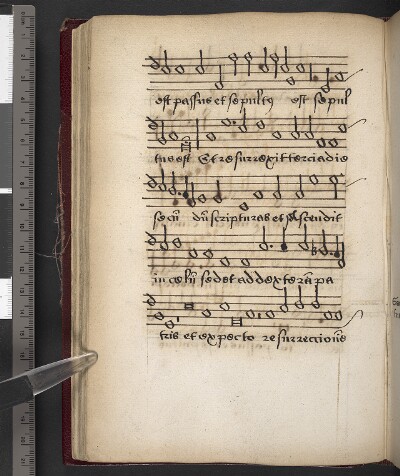 est passus et sepultꝰ est sepul
tus est Et resurrexit tercia die
secū dū scripturas et Ascendit
in celū sedet ad dexterā pa
tris et expecto resurrectionē